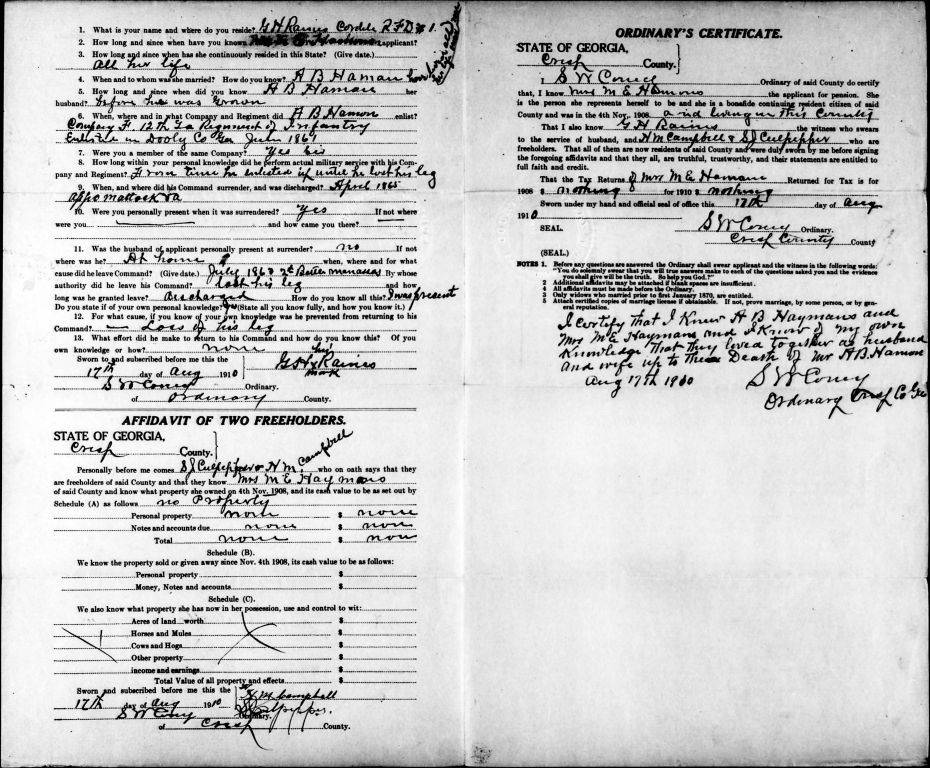 1. What is your name and where do you reside? G H Raines Cordele R F D # 1.
2. How long and since when have you known applicant?
3. How long and since when has she continuously resided in this State? (Give date.)
all her life
4. When and to whom was she married? How do you know? A B Haman
5. How long and since when did you know A B Haman her
husband? before he was Grown
6. When, where and in what Company and Regiment did A B Hamon enlist?
Company F. 12th Ga Regiment of Infantry
Enlisted in Dooly Co Ga June 1861
7. Were you a member of the same Company? Yes his
8. How long within your personal knowledge did he perform actual military service with his Com-
pany and Regiment? From time he enlisted up until he lost his leg
9. When, and where did his Command surrender, and was discharged? April 1865
Appomattock Va
10. Were you personally present when it was surrendered? Yes If not where
were you and how came you there?
11. Was the husband of applicant personally present at surrender? no If not
where was he? At home when, where and for what
cause did he leave Command? (Give date.) July 1863 2d Battle manassas By whose
authority did he leave his Command? lost his leg and how
long was he granted leave? Discharged How do you know all this? I was present
Do you state if of your own personal knowledge? (State all you know fully, and how you know it.)
12. For what cause, if you know of your own knowledge was he prevented from returning to his
Command? Loss of his leg
13. What effort did he make to return to his Command and how do you know this? Of your
own knowledge or how? none
Sworn to and subscribed before me this the
17th day of Aug 1910 G H x Raines
his
mark
S W Coney Ordinary.
of Ordinary County.
AFFIDAVIT OF TWO FREEHOLDERS.
STATE OF GEORGIA,
Crisp County.
Personally before me comes S J Culpepper & H M. Campbell who on oath says that they
are freeholders of said County and that they know Mrs M E Haymans
of said County and know what property she owned on 4th Nov. 1908, and its cash value to be as set out by
Schedule (A) as follows no Property
Personal property none $ none
Notes and accounts due none $ none
Total none $ non
Schedule (B).
We know the property sold or given away since Nov. 4th 1908, its cash value to be as follows:
Personal property $
Money, Notes and accounts $
Schedule (C).
We also know what property she has now in her possession, use and control to wit:
Acres of land worth $
Horses and Mules $
Cows and Hogs $
Other property $
income and earnings $
Total Value of all property and effects. $
Sworn and subscribed before me this the
17th day of Aug 1910 H M Campbell
S J Culpepper.
S W Coney Ordinary.
of Crisp County.
ORDINARY'S CERTIFICATE.
STATE OF GEORGIA,
Crisp County.
I, S W Coney Ordinary of said County do certify
that, I know Mrs M E Hamons the applicant for pension. She
is the person she represents herself to be and she is a bonafide continuing resident citizen of said
County and was in the 4th Nov., 1908. and living in this County
That I also know G H Raines the witness who swears
to the service of husband, and H M Campbell & S J Culpepper who are
freeholders. That all of them are now residents of said County and were duly sworn by me before signing
the foregoing affidavits and that they all, are truthful, trustworthy, and their statements are entitled to
full faith and credit.
That the Tax Returns of Mrs M E Hamans Returned for Tax is for
1908 $ nothing for 1910 $ nothing
Sworn under my hand and official seal of office this 17th day of Aug
1910
SEAL. S W Coney Ordinary.
Crisp County County
(SEAL.)
NOTES 1. Before any questions are answered the Ordinary shall swear applicant and the witness in the following words:
"You do solemnly swear that you will true answers make to each of the questions asked you and the evidence
you shall give will be the truth. So help you God."
2 Additional affidavits may be attached if blank spaces are insufficient.
4 All affidavits must be made before the Ordinary.
3 Only widows who married prior to first January 1870, are entitled.
3 Attach certified copies of marriage license if obtainable. If not, prove marriage, by some person, or by gen-
eral reputation.
I certify that I Knew A B Haymans and
Mrs M E Haymans and I Know of my own
Knowledge that they lived together as husband
and wife up to the Death of Mr A B Hamon
Aug 17th 1910
S W Coney
Ordinary Crisp Co Ga